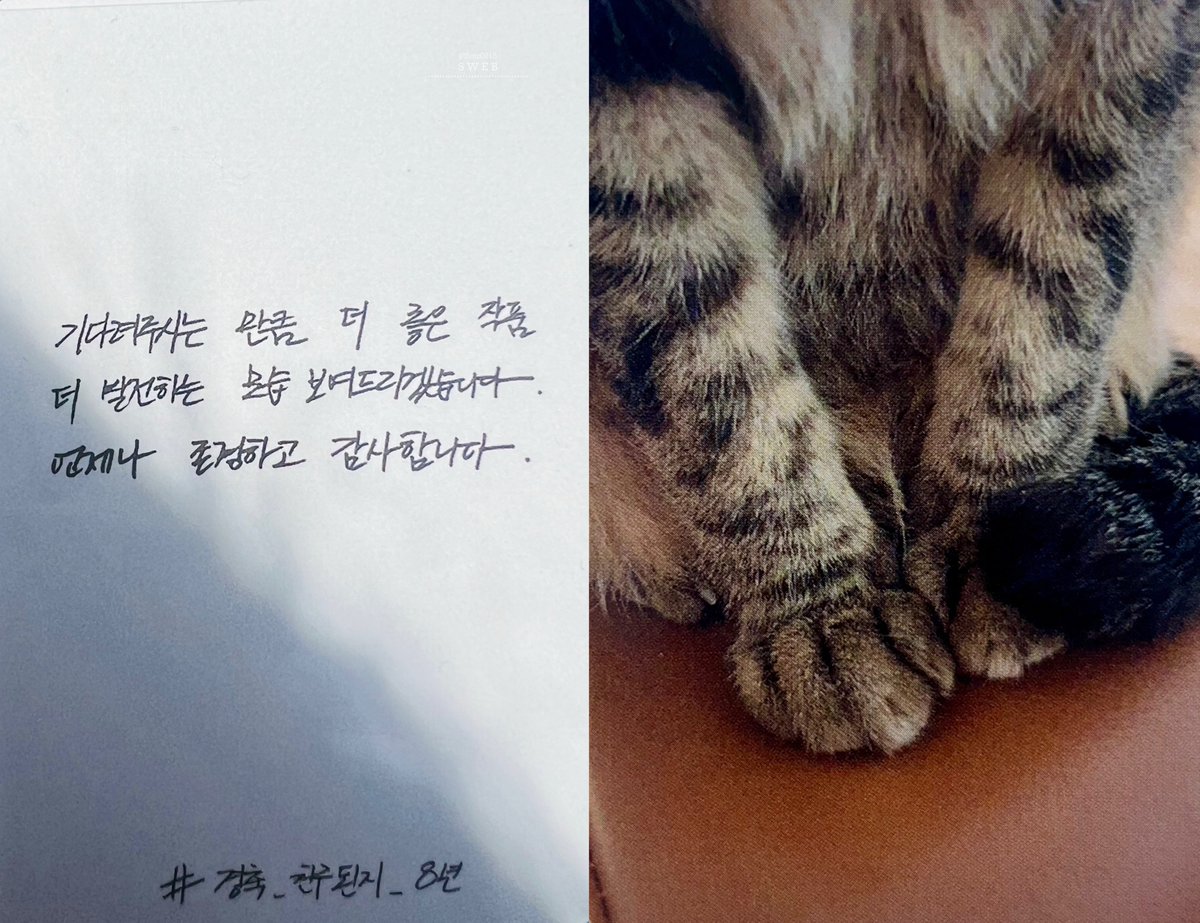 SWEB
기다려주시는 만큼 더 좋은 작품
더 발전하는 모습 보여드리겠습니다.
언제나 존경하고 감사합니다.
#경축_친구된지_8년